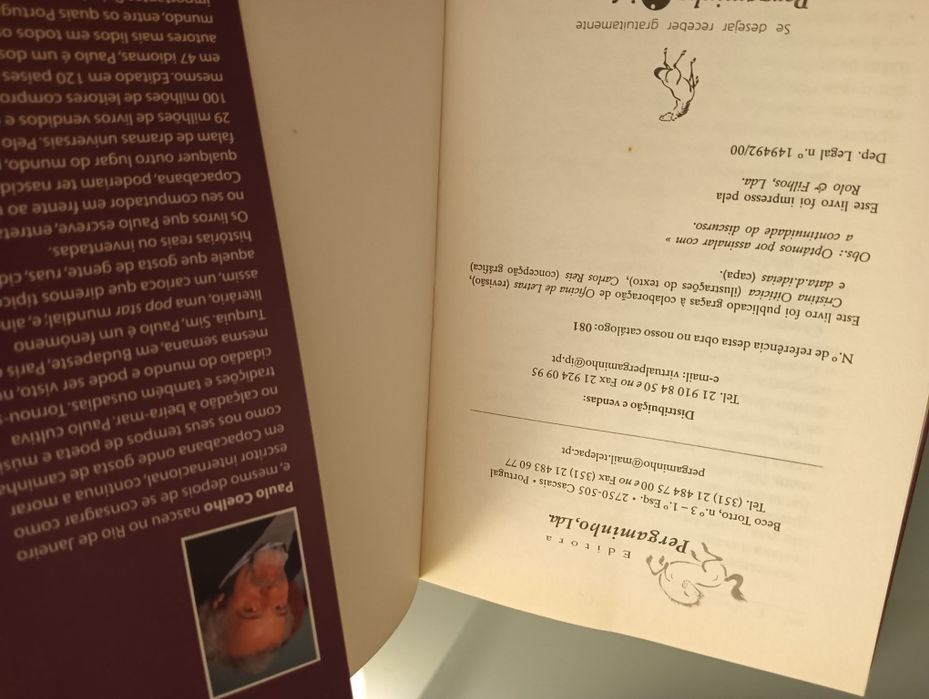 Paulo Coelho nasceu no Rio de Janeiro
e, mesmo depois de se consagrar como
escritor internacional, continua a morar
em Copacabana onde gosta de caminha
como nos seus tempos de poeta e músi
no calçadão à beira-mar. Paulo cultiva
tradições e também ousadias. Tornou-s
cidadão do mundo e pode ser visto, n
mesma semana, em Budapeste, Paris
Turquia. Sim, Paulo é um fenómeno
literário, uma pop star mundial; e, ain
assim, um carioca que diremos típic
aquele que gosta de gente, ruas, ci
histórias reais ou inventadas.
Os livros que Paulo escreve, entret
no seu computador em frente ao
Copacabana, poderiam ter nascid
qualquer outro lugar do mundo,
falam de dramas universais. Pelo
29 milhões de livros vendidos e
100 milhões de leitores compro
mesmo. Editado em 120 países
em 47 idiomas, Paulo é um dos
autores mais lidos em todos o
mundo, entre os quais Portug
Editora
Pergaminho, Lda.
Beco Torto, n.º 3 – 1.º Esq. • 2750-505 Cascais • Portugal
Tel. (351) 21 484 75 00 e no Fax (351) 21 483 60 77
pergaminho@mail.telepac.pt
Distribuição e vendas:
Tel. 21 910 84 50 e no Fax 21 924 09 95
e-mail: virtualpergaminho@ip.pt
N.º de referência desta obra no nosso catálogo: 081
Este livro foi publicado graças à colaboração de Oficina de Letras (revisão),
Cristina Oiticica (ilustrações do texto), Carlos Reis (concepção gráfica)
e data.d.ideias (capa).
Obs.: Optámos por assinalar com »
a continuidade do discurso.
Este livro foi impresso pela
Rolo & Filhos, Lda.
Dep. Legal n.º 149492/00
Se desejar receber gratuitamente